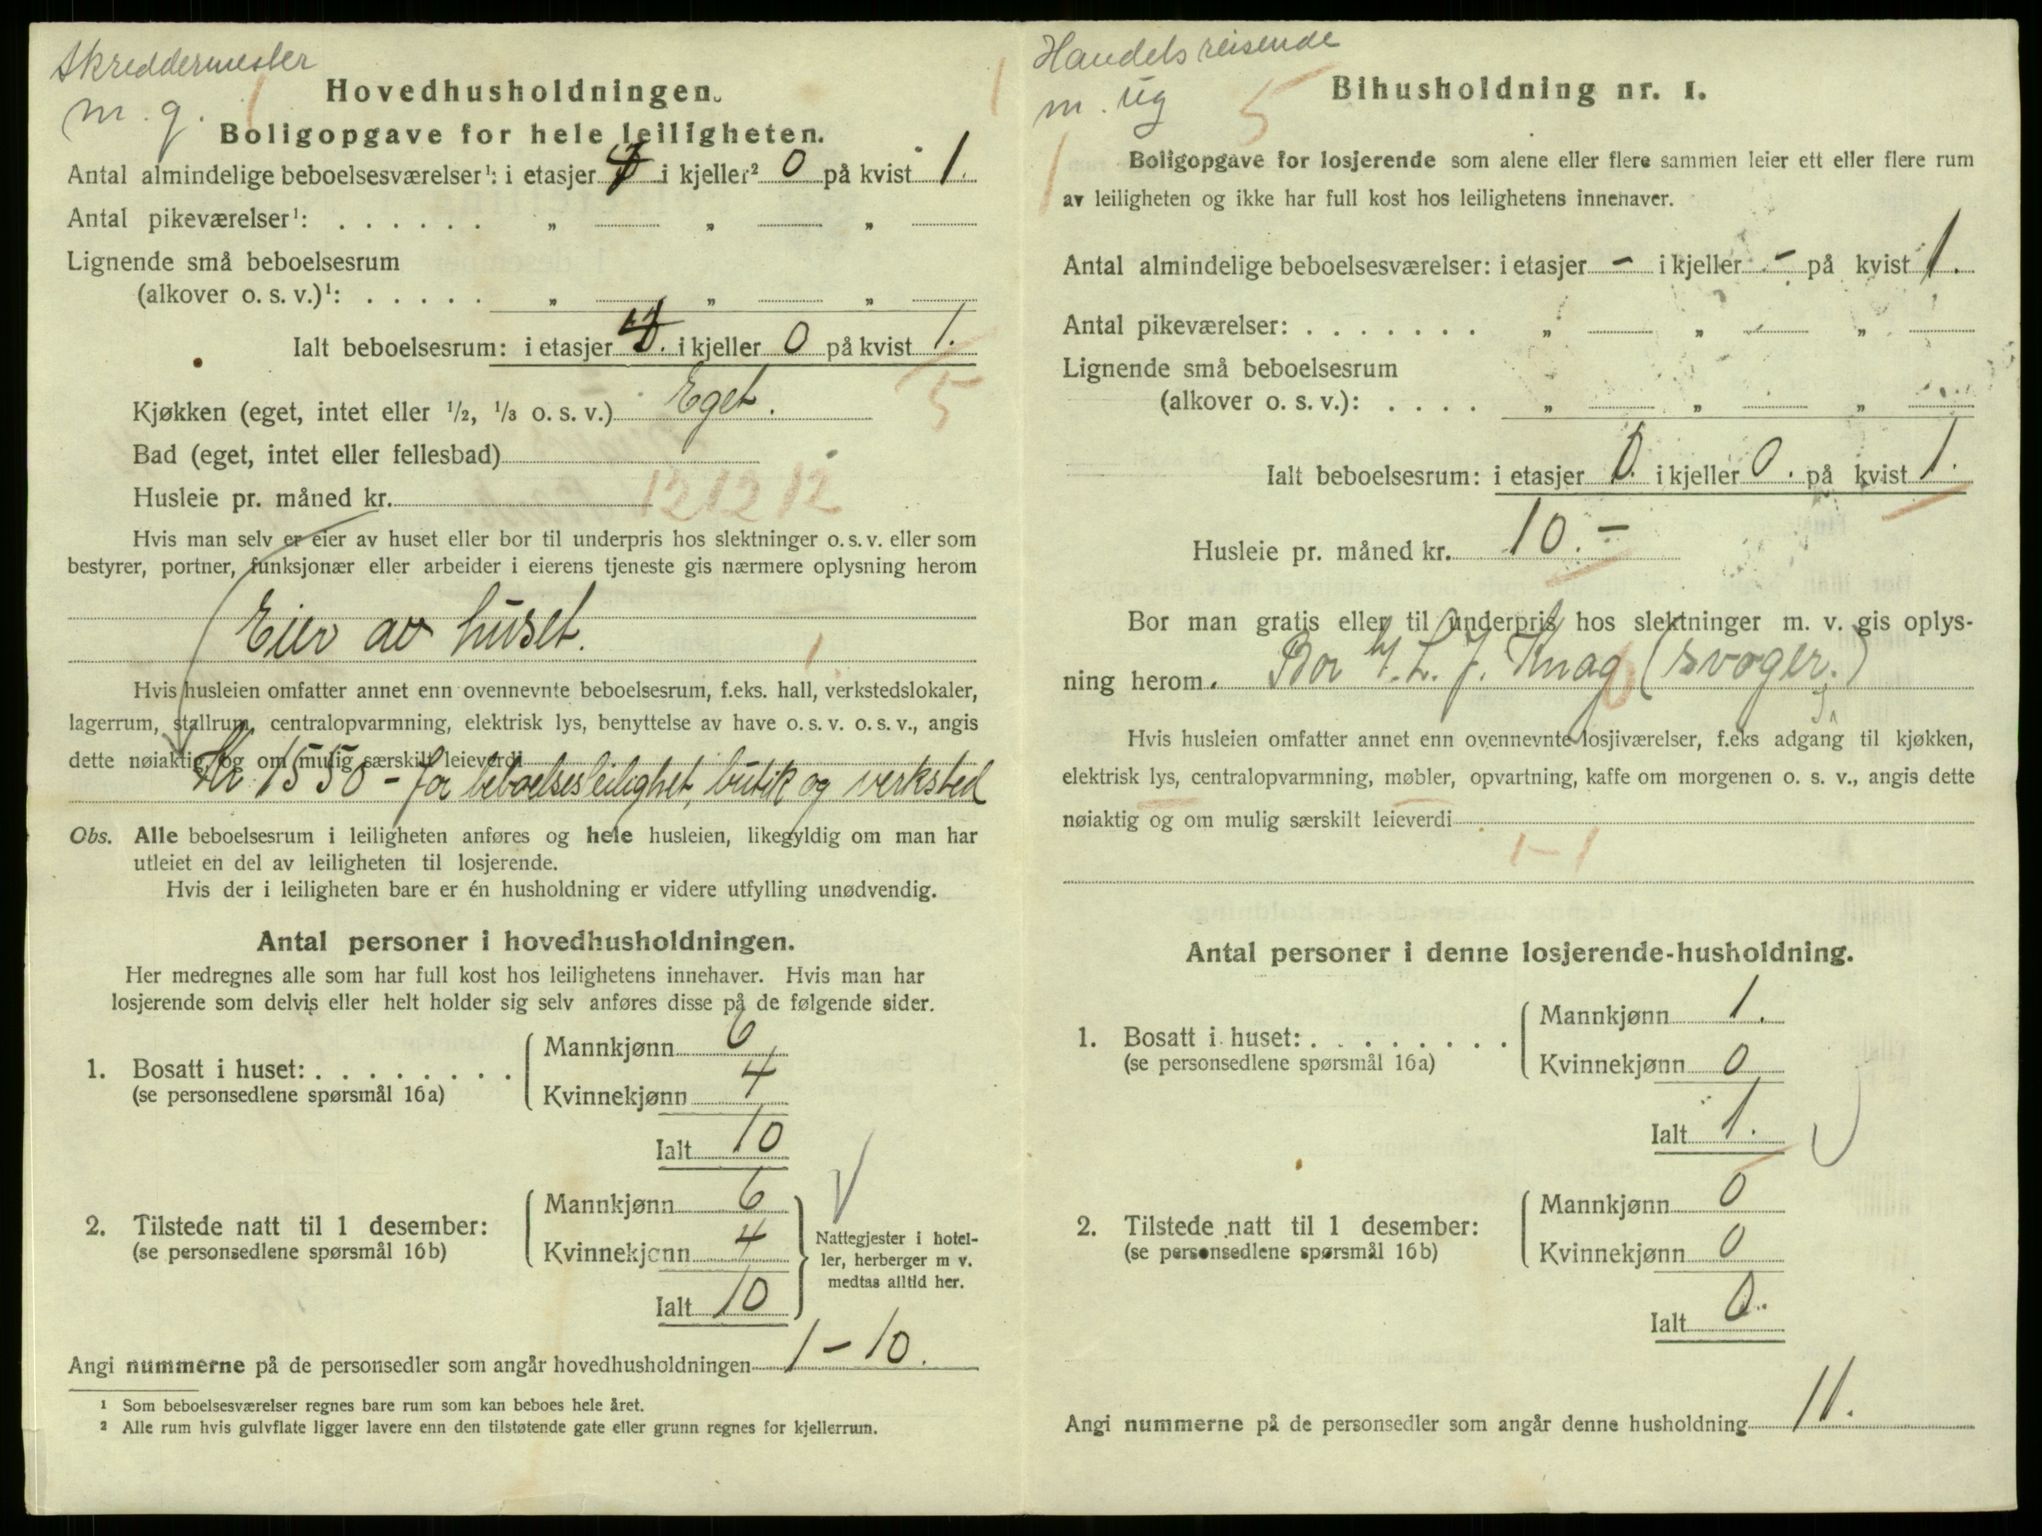 Skreddermester
m. g. 1
Hovedhusholdningen.
Boligopgave for hele leiligheten.
Antal almindelige beboelsesværelser¹: i etasjer 4 i kjeller² 0 på kvist 1.
Antal pikeværelser¹: . . . . . . „ „ „
Lignende små beboelsesrum
(alkover o. s. v.)¹: . . . . . „ „ „
Ialt beboelsesrum: i etasjer 4. i kjeller 0 på kvist 1.
5
Kjøkken (eget, intet eller ½, ⅓ o. s. v.) Eget.
Bad (eget, intet eller fellesbad)
Husleie pr. måned kr. 12 12 12
Hvis man selv er eier av huset eller bor til underpris hos slektninger o. s. v. eller som
bestyrer, portner, funksjonær eller arbeider i eierens tjeneste gis nærmere oplysning herom
Eier av huset.
1.
Hvis husleien omfatter annet enn ovennevnte beboelsesrum, f.eks. hall, verkstedslokaler,
lagerrum, stallrum, centralopvarmning, elektrisk lys, benyttelse av have o. s. v. o. s. v., angis
dette nøiaktig, og om mulig særskilt leieverdi
Kr 1550 - for beboelsesleilighet, butik og verksted
Obs. Alle beboelsesrum i leiligheten anføres og hele husleien, likegyldig om man har
utleiet en del av leiligheten til losjerende.
Hvis der i leiligheten bare er én husholdning er videre utfylling unødvendig.
Antal personer i hovedhusholdningen.
Her medregnes alle som har full kost hos leilighetens innehaver. Hvis man har
losjerende som delvis eller helt holder sig selv anføres disse på de følgende sider.
1. Bosatt i huset: . . . . . . . .
(se personsedlene spørsmål 16a)
Mannkjønn 6
Kvinnekjønn 4
Ialt 10
2. Tilstede natt til 1 desember:
(se personsedlene spørsmål 16b)
Mannkjønn 6
Kvinnekjønn 4
Ialt 10
Nattegjester i hotel-
ler, herberger m v.
medtas alltid her.
Angi nummerne på de personsedler som angår hovedhusholdningen 1 - 10.
¹ Som beboelsesværelser regnes bare rum som kan beboes hele året.
² Alle rum hvis gulvflate ligger lavere enn den tilstøtende gate eller grunn regnes for kjellerrum.
1
Handelsreisende
m. ug 5
Bihusholdning nr. 1.
1
Boligopgave for losjerende som alene eller flere sammen leier ett eller flere rum
av leiligheten og ikke har full kost hos leilighetens innehaver.
Antal almindelige beboelsesværelser: i etasjer - i kjeller - på kvist 1.
Antal pikeværelser: . . . . . . . „ „ „
Lignende små beboelsesrum
(alkover o. s. v.): . . . . „ „ „
Ialt beboelsesrum: i etasjer 0. i kjeller 0. på kvist 1.
Husleie pr. måned kr. 10.-
Bor man gratis eller til underpris hos slektninger m. v. gis oplys-
ning herom. Bor L. J. Knag (svoger.)
Hvis husleien omfatter annet enn ovennevnte losjiværelser, f.eks adgang til kjøkken,
elektrisk lys, centralopvarmning, møbler, opvartning, kaffe om morgenen o. s. v., angis dette
nøiaktig og om mulig særskilt leieverdi
1 - 1
Antal personer i denne losjerende-husholdning.
1. Bosatt i huset: . . . . . . . . .
(se personsedlene spørsmål 16a)
Mannkjønn 1.
Kvinnekjønn 0
Ialt 1.
2. Tilstede natt til 1 desember:
(se personsedlene spørsmål 16b)
Mannkjønn 0
Kvinnekjønn 0
Ialt 0.
Angi nummerne på de personsedler som angår denne husholdning 11.